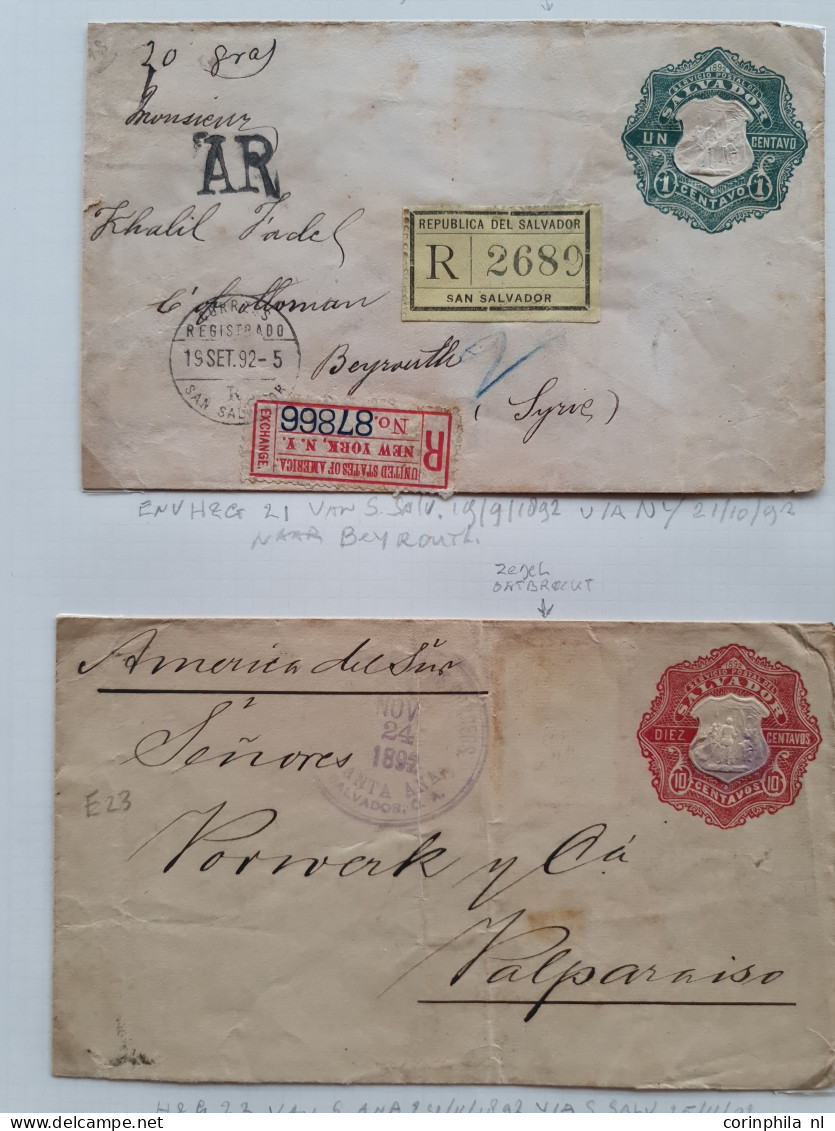 20 gras
Monsieur
AR
Khalil Fadel
Beyrouth
(Syrie)
1892
SERVICIO POSTAL DEL
SALVADOR
UN CENTAVO
1 CENTAVO 1
REPUBLICA DEL SALVADOR
R 2689
SAN SALVADOR
CORREOS
REGISTRADO
19 SET. 92-5
R
SAN SALVADOR
UNITED STATES OF AMERICA.
NEW YORK, N. Y.
EXCHANGE.
R
No. 87866
ENV H&G 21 VAN S. SALV. 19/9/1892 VIA NY 21/10/92
NAAR BEYROUTH.
ZEGEL
ONTBREEKT
America del Sur
Señores
Vorwerk y Ca
Valparaiso
E23
NOV
24
1892
SANTA ANA
SALVADOR, C. A.
1892
SERVICIO POSTAL DEL
SALVADOR
DIEZ CENTAVOS
10 CENTAVOS 10
H&G 23 VAN S ANA 24/11/1892 VIA S SALV
corinphila nl